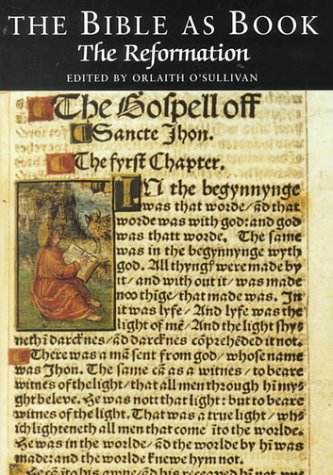 THE BIBLE AS BOOK
The Reformation
EDITED BY ORLAITH O'SULLIVAN
The Gospell off
Sancte Jhon.
The fyrst Chapter.
IN the begynnynge
was that worde/ ād that
worde was with god: and god
was thatt worde. The same
was in the begynnynge wyth
god. All thyngꝭ were made by
it/ and with out it/ was made
noo thīge/ that made was. In
it was lyfe/ And lyfe was the
light of mē/ And the light shy⸗
neth ī darcknes/ ād darcknes cōprehēded it not.
There was a mā sent from god/ whose name
was Jhon. The same cā as a witnes/ to beare
witnes of the light/ that all men through hī my⸗
ght beleve. He was nott that light: but to beare
witnes of the light. That was a true light/ wh⸗
ich lighteneth all men that come īto the worlde.
He was in the worlde/ ād the worlde by hī was
made: and the worlde knewe hym not.